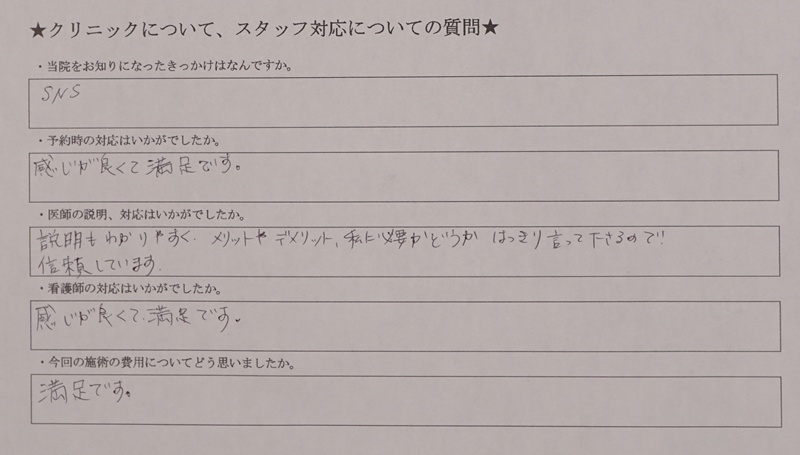 ★クリニックについて、スタッフ対応についての質問★
・当院をお知りになったきっかけはなんですか。
SNS
・予約時の対応はいかがでしたか。
感じが良くて満足です。
・医師の説明、対応はいかがでしたか。
説明もわかりやすく、メリットやデメリット、私に必要かどうかはっきり言って下さるので!!
信頼しています。
・看護師の対応はいかがでしたか。
感じが良くて、満足です。
・今回の施術の費用についてどう思いましたか。
満足です。